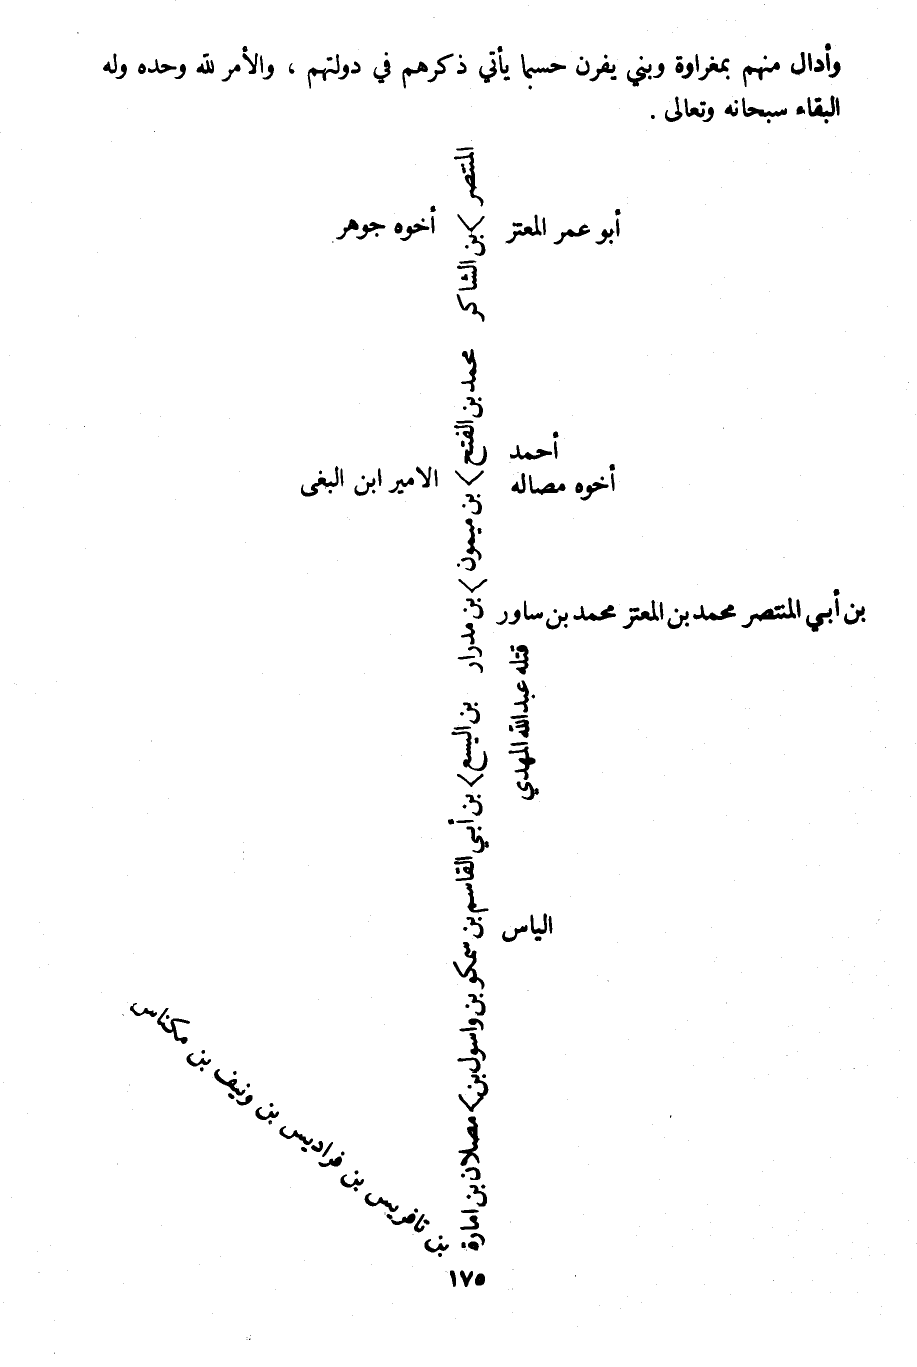 وأدال منهم بمغراوة وبني يفرن حسبما يأتي ذكرهم في دولتهم ، والأمر لله وحده وله
البقاء سبحانه وتعالى .
المنتصر
أبو عمر المعتز
أخوه جوهر
بن الشاكر
محمد بن الفتح
أحمد
أخوه مصاله
الامير ابن البغى
بن ميمون
بن مدرار
بن أبي المنتصر محمد بن المعتز محمد بن ساور
قتله عبد الله المهدي
بن اليسع
بن أبي القاسم بن سمكو بن واسول بن
الياس
مصلان بن امارة
بن تافريس بن فراديس بن ونيف بن مكناس
١٧٥